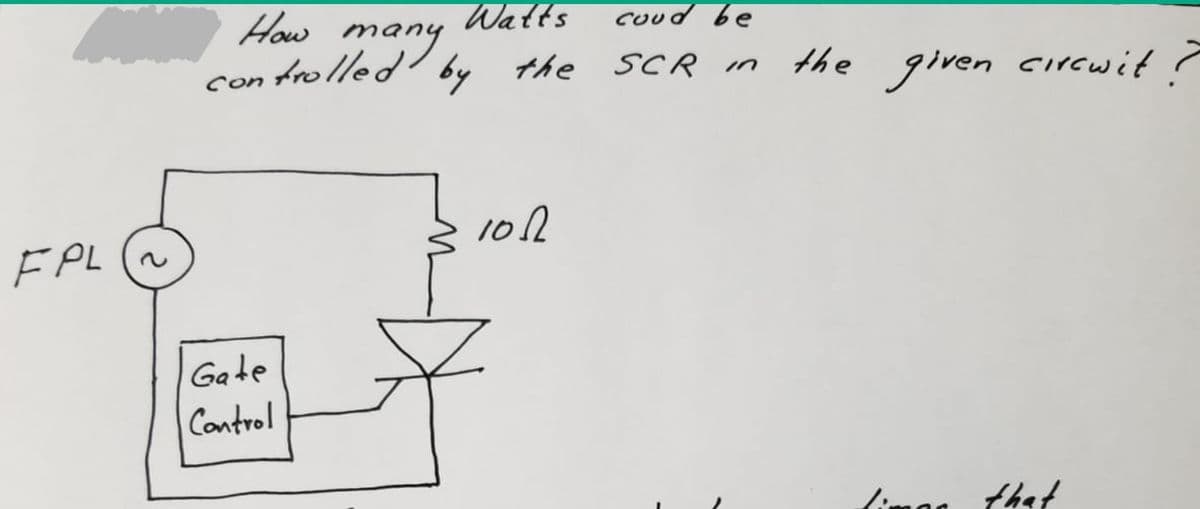 How many Watts coud be
controlled by the SCR in the given circuit ?
10Ω
FPL ~
Gate
Control
that